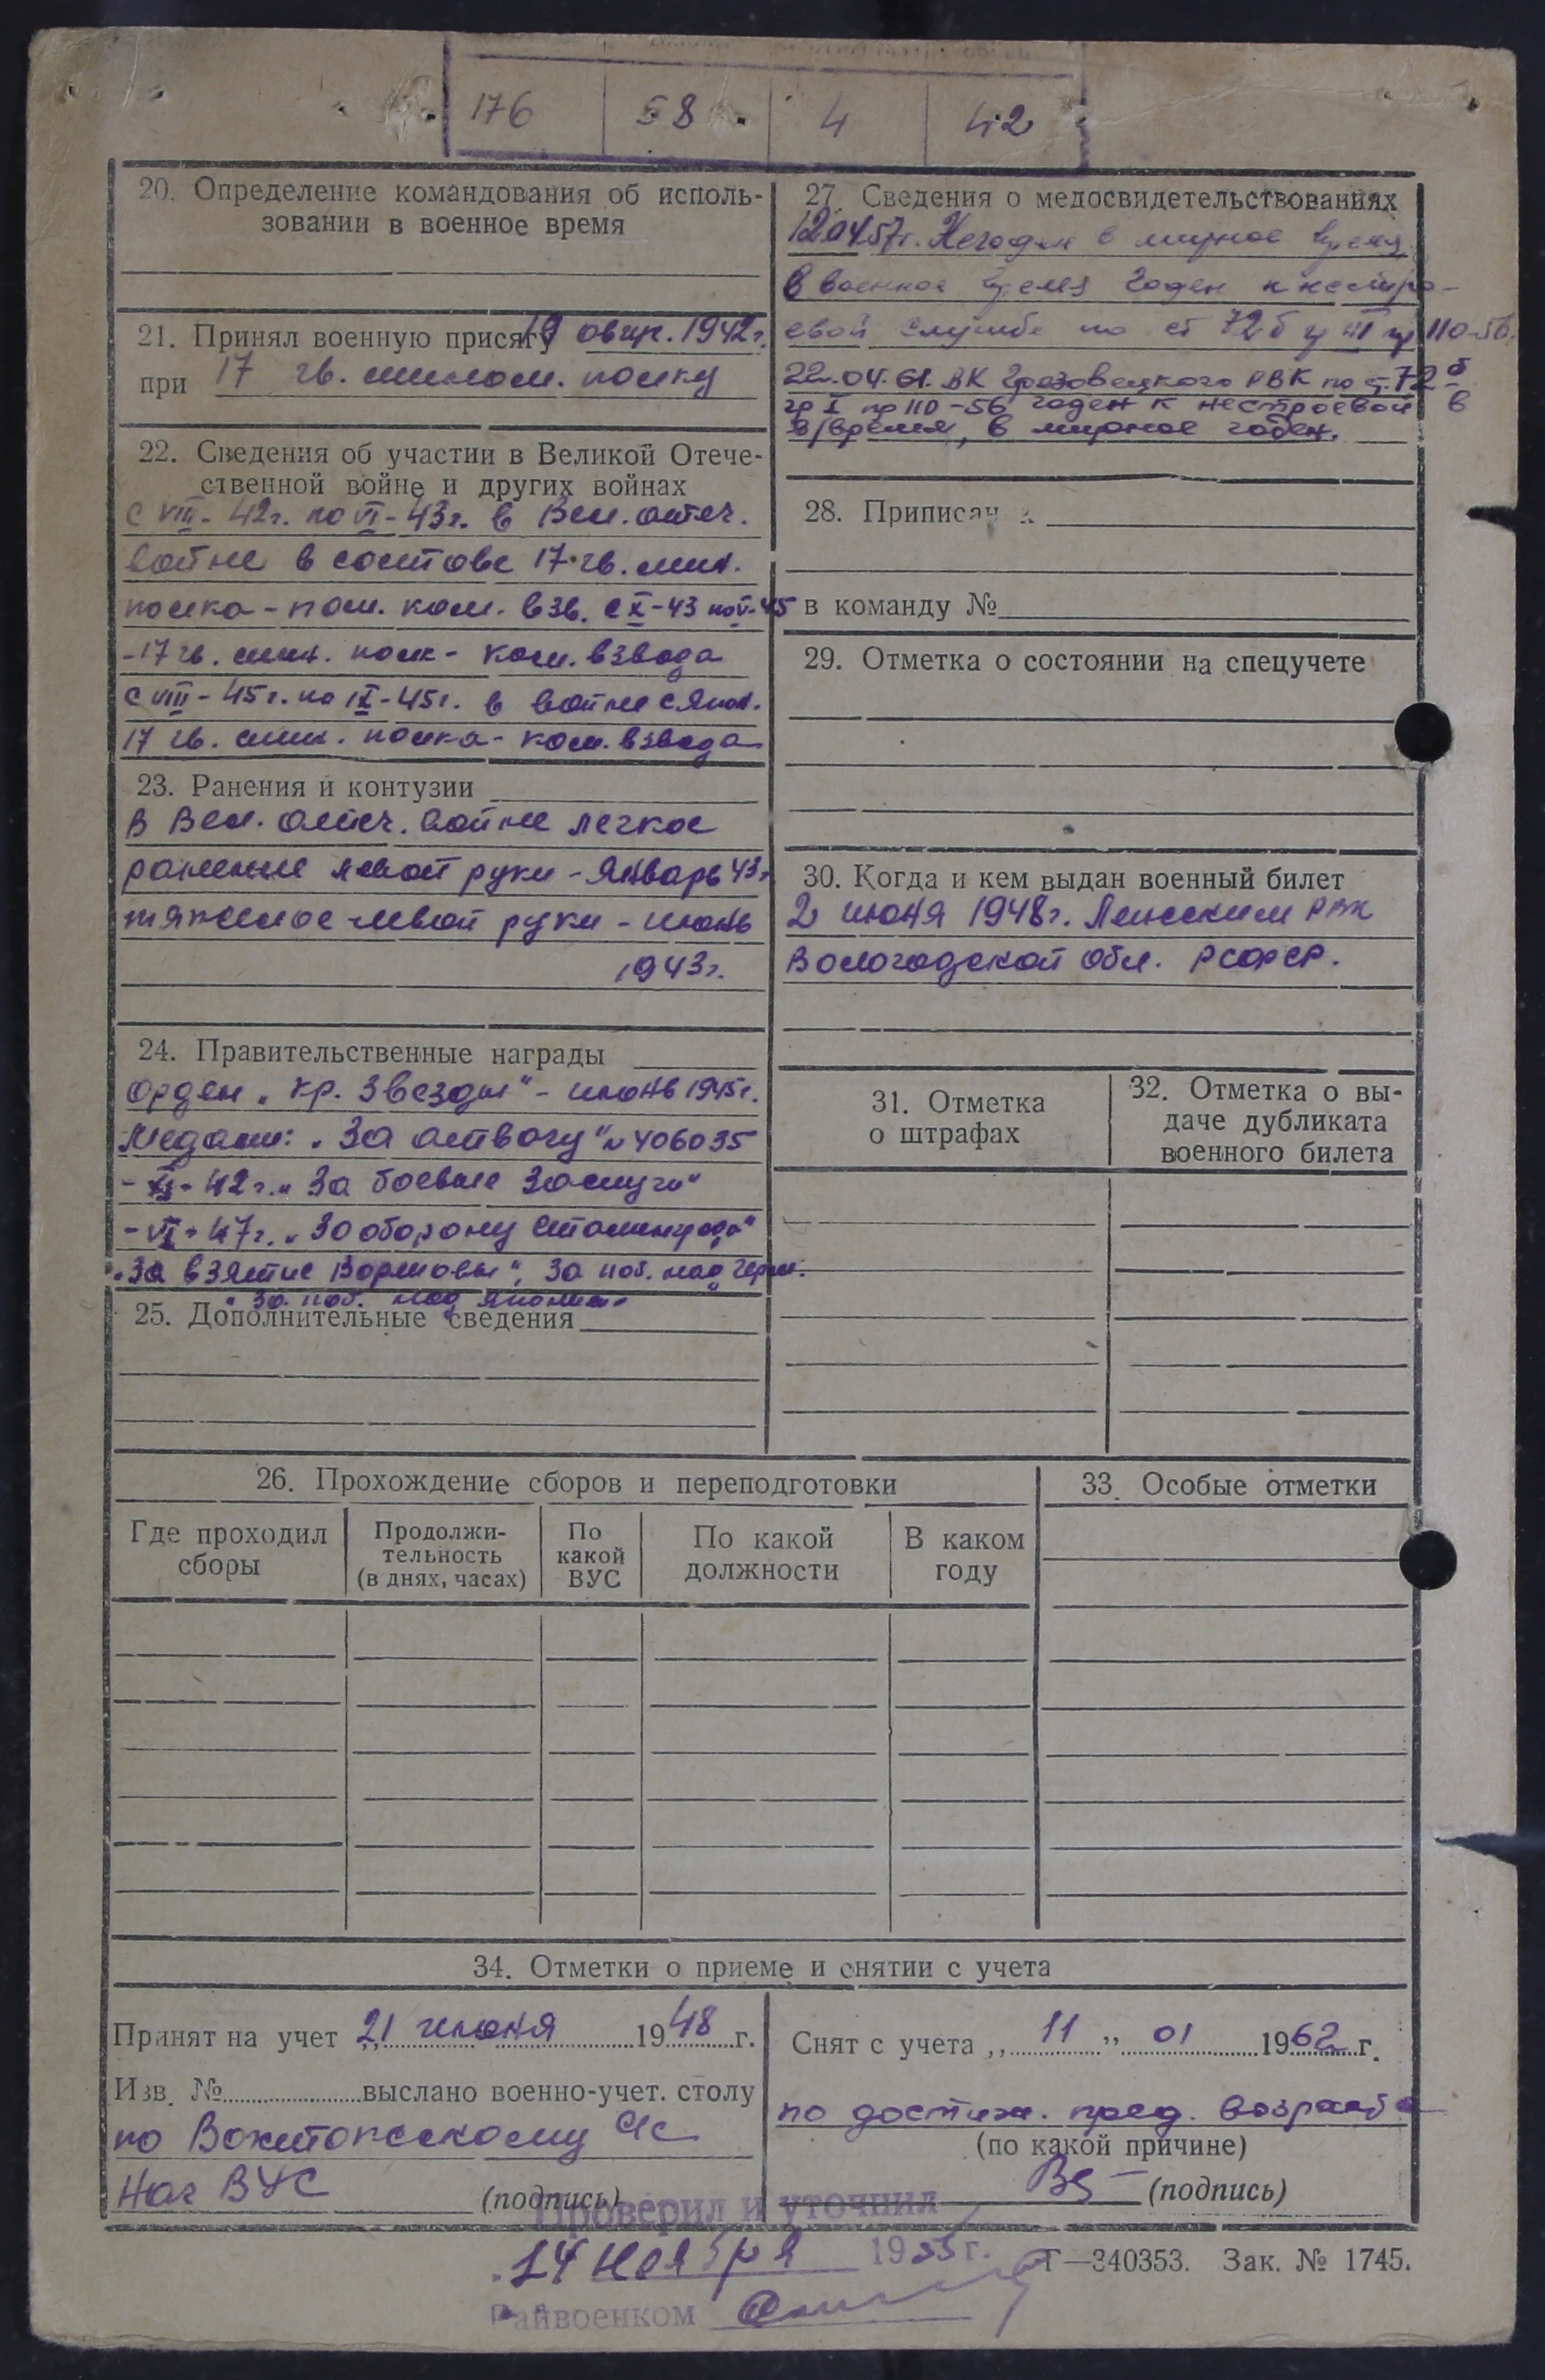 176 58 4 42
20. Определение командования об исполь-
зовании в военное время
21. Принял военную присягу 19 авгус. 1942 г.
при 17 гв. мином. полку
22. Сведения об участии в Великой Отече-
ственной войне и других войнах
с VIII-42г. по VI-43г. в Вел. отеч.
войне в составе 17 гв. мин.
полка - пом. ком. взв. с X-43 по V-45
-17 гв. мин. полк - ком. взвода
с VIII-45г. по IX-45г. в войне с Япон.
17 гв. мин. полка - ком. взвода
23. Ранения и контузии
В Вел. отеч. войне легкое
ранение левой руки - Январь 43г.
тяжелое левой руки - июнь
1943г.
24. Правительственные награды
орден „Кр. Звезды" - июнь 1945г.
Медали: „За отвагу" № 406035
- 42г. „За боевые заслуги"
- VI-47г. „За оборону Сталинграда"
„За взятие Варшавы", За поб. над Герм.
„За поб. над Японией"
25. Дополнительные сведения
27. Сведения о медосвидетельствованиях
12.04.57г. Негоден в мирное время
в военное время годен к нестро-
евой службе по ст 72б гр III пр 110-56.
22.04.61. ВК Грязовецкого РВК по ст. 72 б
гр I пр 110-56 годен к нестроевой в
в/время, в мирное годен.
28. Приписан к
в команду №
29. Отметка о состоянии на спецучете
30. Когда и кем выдан военный билет
2 июня 1948г. Ленским РВК
Вологодской обл. РСФСР.
31. Отметка
о штрафах
32. Отметка о вы-
даче дубликата
военного билета
26. Прохождение сборов и переподготовки
Где проходил
сборы
Продолжи-
тельность
(в днях, часах)
По
какой
ВУС
По какой
должности
В каком
году
33. Особые отметки
34. Отметки о приеме и снятии с учета
Принят на учет „21 июня 1948 г.
Изв. № выслано военно-учет. столу
по Вожтопскому с/с
Нач ВУС (подпись)
Снят с учета „11" 01 1962 г.
по достиж. пред. возраста
(по какой причине)
(подпись)
Проверил и уточнил
14 ноября 1953 г.
Райвоенком
Г—340353. Зак. № 1745.